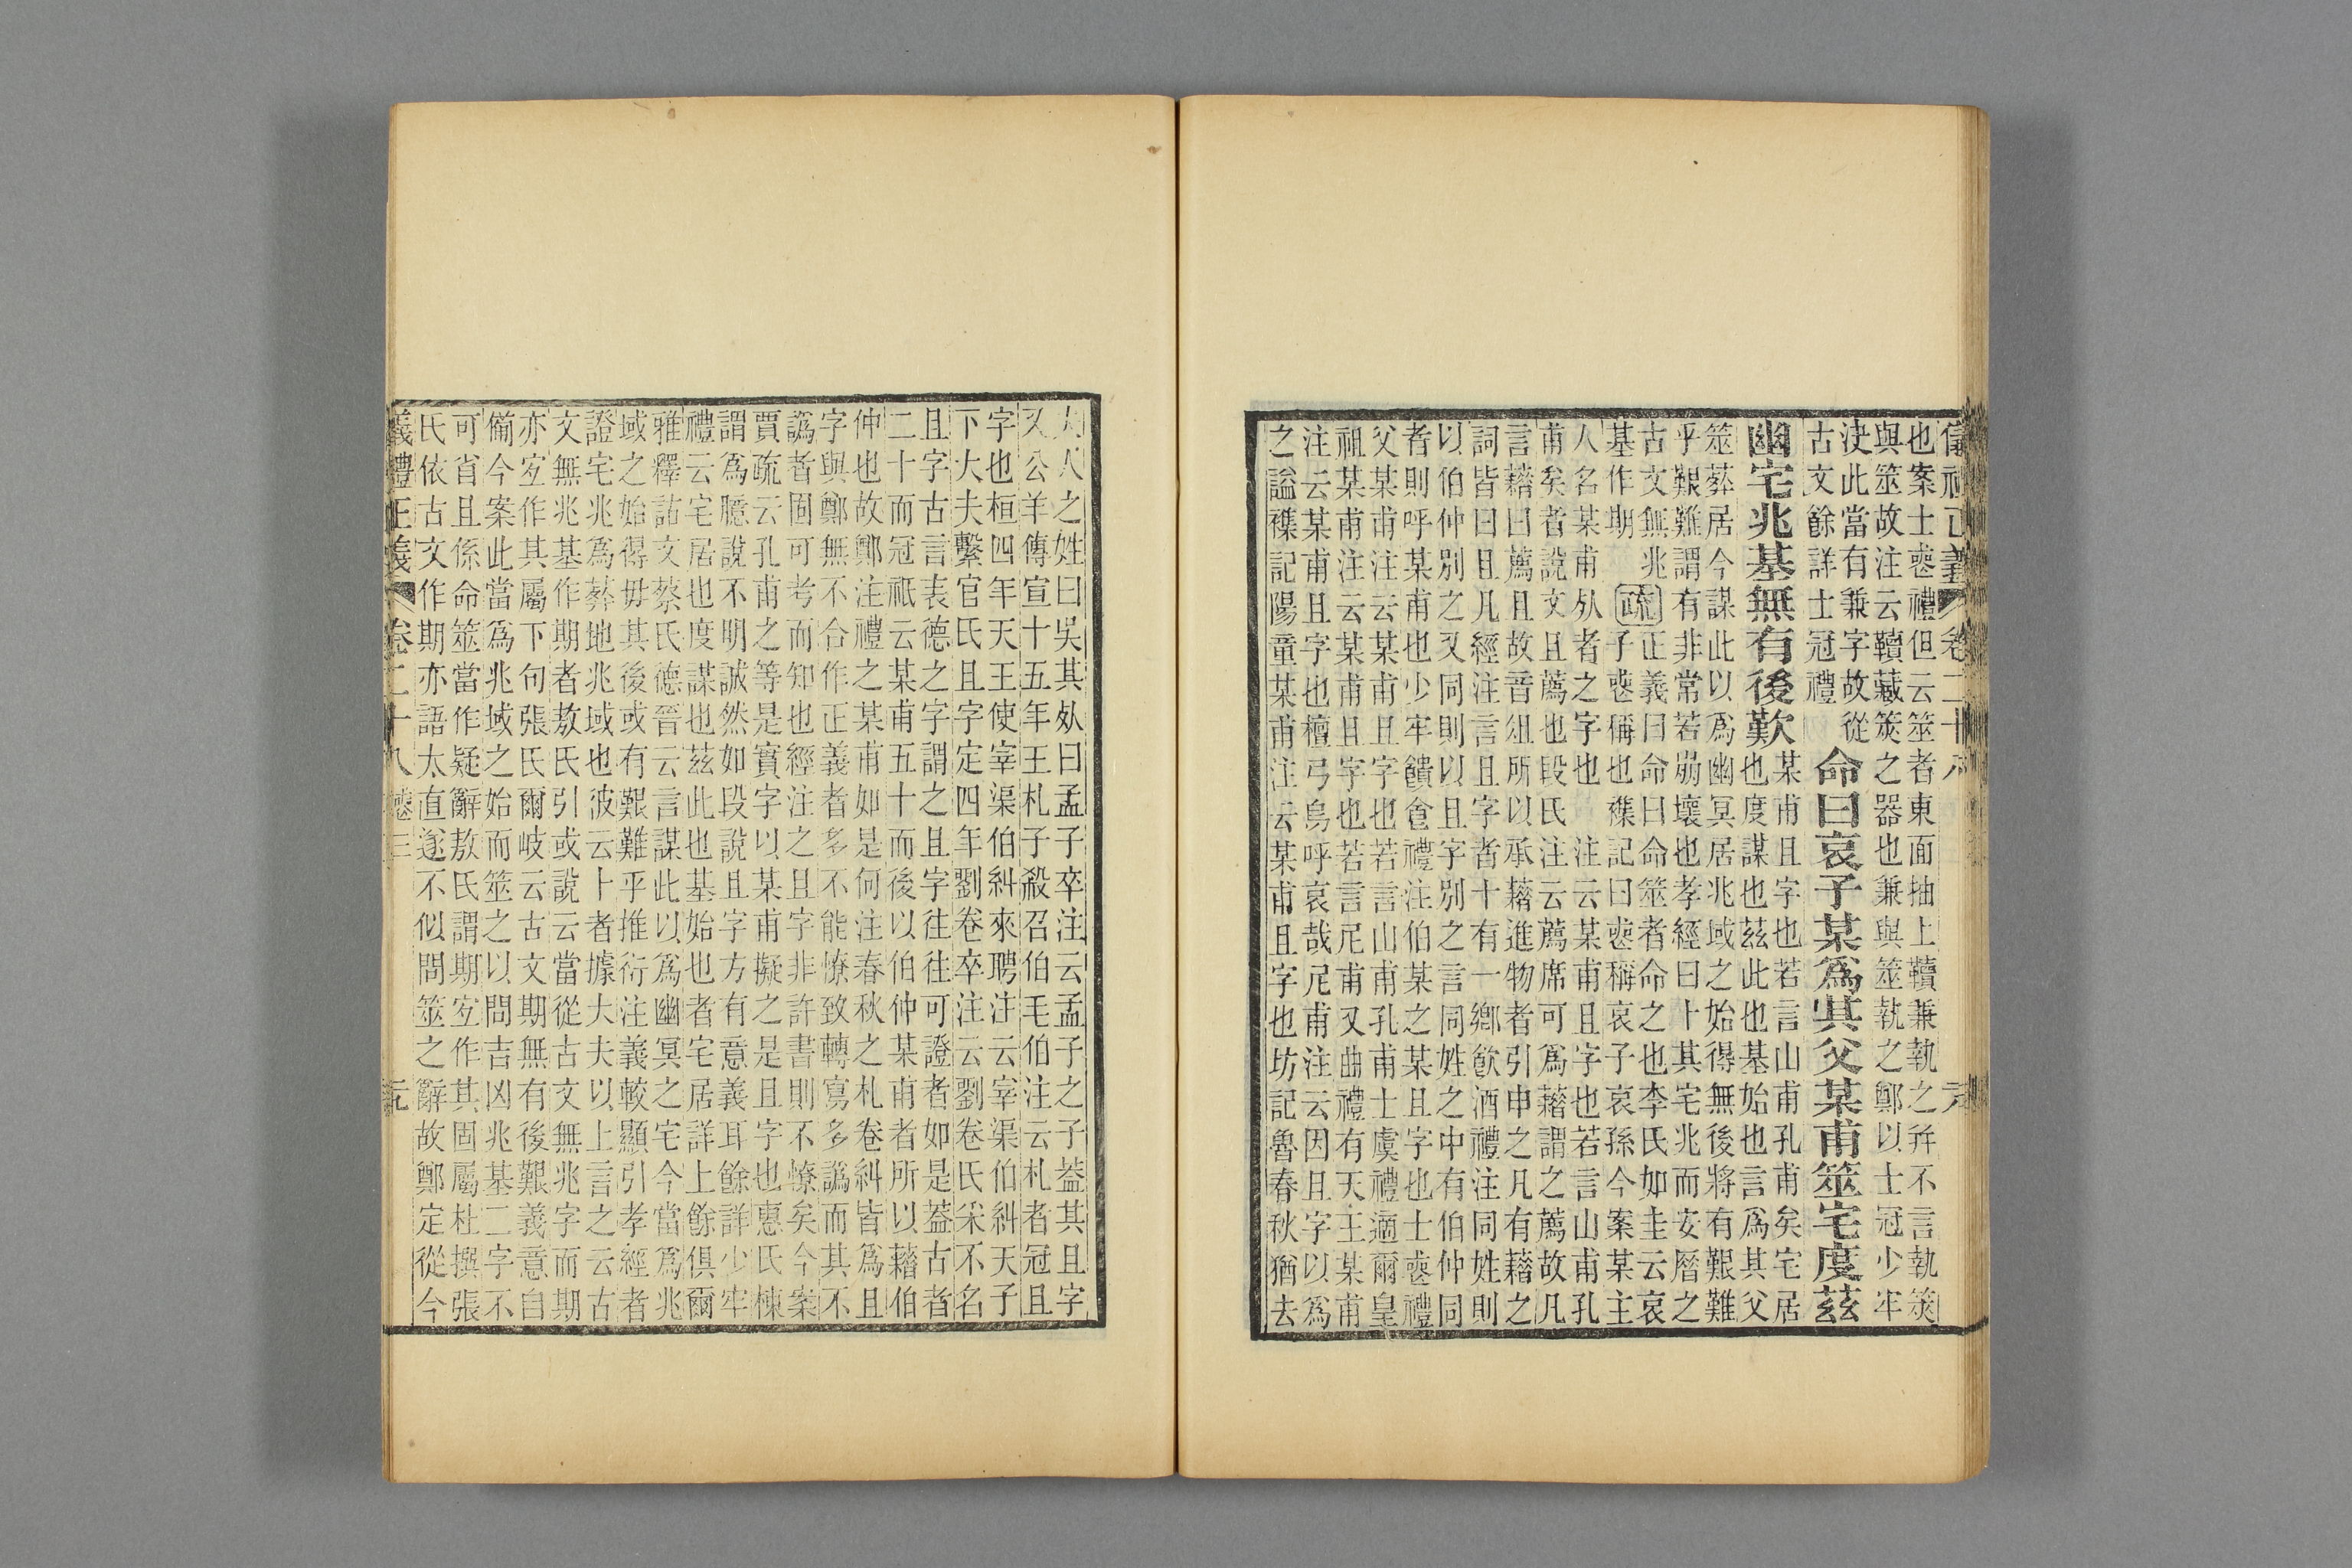 儀禮正義 卷二十八
也案士喪禮但云筮者東面抽上韇兼執之并不言執筴
與筮故注云韇藏筴之器也兼與筮執之鄭以士冠少牢
決此當有兼字故從
古文餘詳士冠禮
命曰哀子某爲其父某甫筮宅度茲
幽宅兆基無有後艱
某甫且字也若言山甫孔甫矣宅居
也度謀也茲此也基始也言爲其父
筮葬居今謀此以爲幽冥居兆域之始得無後將有艱難
乎艱難謂有非常若崩壞也孝經曰卜其宅兆而安厝之
古文無兆
基作期
疏
正義曰命曰命筮者命之也李氏如圭云哀
子喪稱也襍記曰喪稱哀子哀孫今案某主
人名某甫死者之字也 注云某甫且字也若言山甫孔
甫矣者說文且薦也段氏注云薦席可爲藉謂之薦故凡
言藉曰薦且故音俎所以承藉進物者引申之凡有藉之
詞皆曰且凡經注言且字者十有一鄉飲酒禮注同姓則
以伯仲別之又同則以且字別之言同姓之中有伯仲同
者則呼某甫也少牢饋食禮注伯某之某且字也士喪禮
父某甫注云某甫且字也若言山甫孔甫士虞禮適爾皇
祖某甫注云某甫且字也若言尼甫又曲禮有天王某甫
注云某甫且字也檀弓烏呼哀哉尼甫注云因且字以爲
之謚襍記陽童某甫注云某甫且字也坊記魯春秋猶去
夫人之姓曰吳其死曰孟子卒注云孟子之子蓋其且字
又公羊傳宣十五年王札子殺召伯毛伯注云札者冠且
字也桓四年天王使宰渠伯糾來聘注云宰渠伯糾天子
下大夫繫官氏且字定四年劉卷卒注云劉卷氏采不名
且字古言表德之字謂之且字往往可證者如是蓋古者
二十而冠祇云某甫五十而後以伯仲某甫者所以藉伯
仲也故鄭注禮之某甫如是何注春秋之札卷糾皆爲且
字與鄭無不合作正義者多不能憭致轉寫多譌而其不
譌者固可考而知也經注之且字非許書則不憭矣今案
賈疏云孔甫之等是實字以某甫擬之是且字也惠氏棟
謂爲臆說不明誠然如段說且字方有意義耳餘詳少牢
禮云宅居也度謀也茲此也基始也者宅居詳上餘俱爾
雅釋詁文蔡氏德晉云言謀此以爲幽冥之宅今當爲兆
域之始得毋其後或有艱難乎推衍注義較顯引孝經者
證宅兆爲葬地兆域也彼云卜者據大夫以上言之云古
文無兆基作期者敖氏引或說云當從古文無兆字而期
亦宐作其屬下句張氏爾岐云古文期無有後艱義意自
備今案此當爲兆域之始而筮之以問吉凶兆基二字不
可省且係命筮當作疑辭敖氏謂期宐作其固屬杜撰張
氏依古文作期亦語太直遂不似問筮之辭故鄭定從今
儀禮正義 卷二十八 喪三